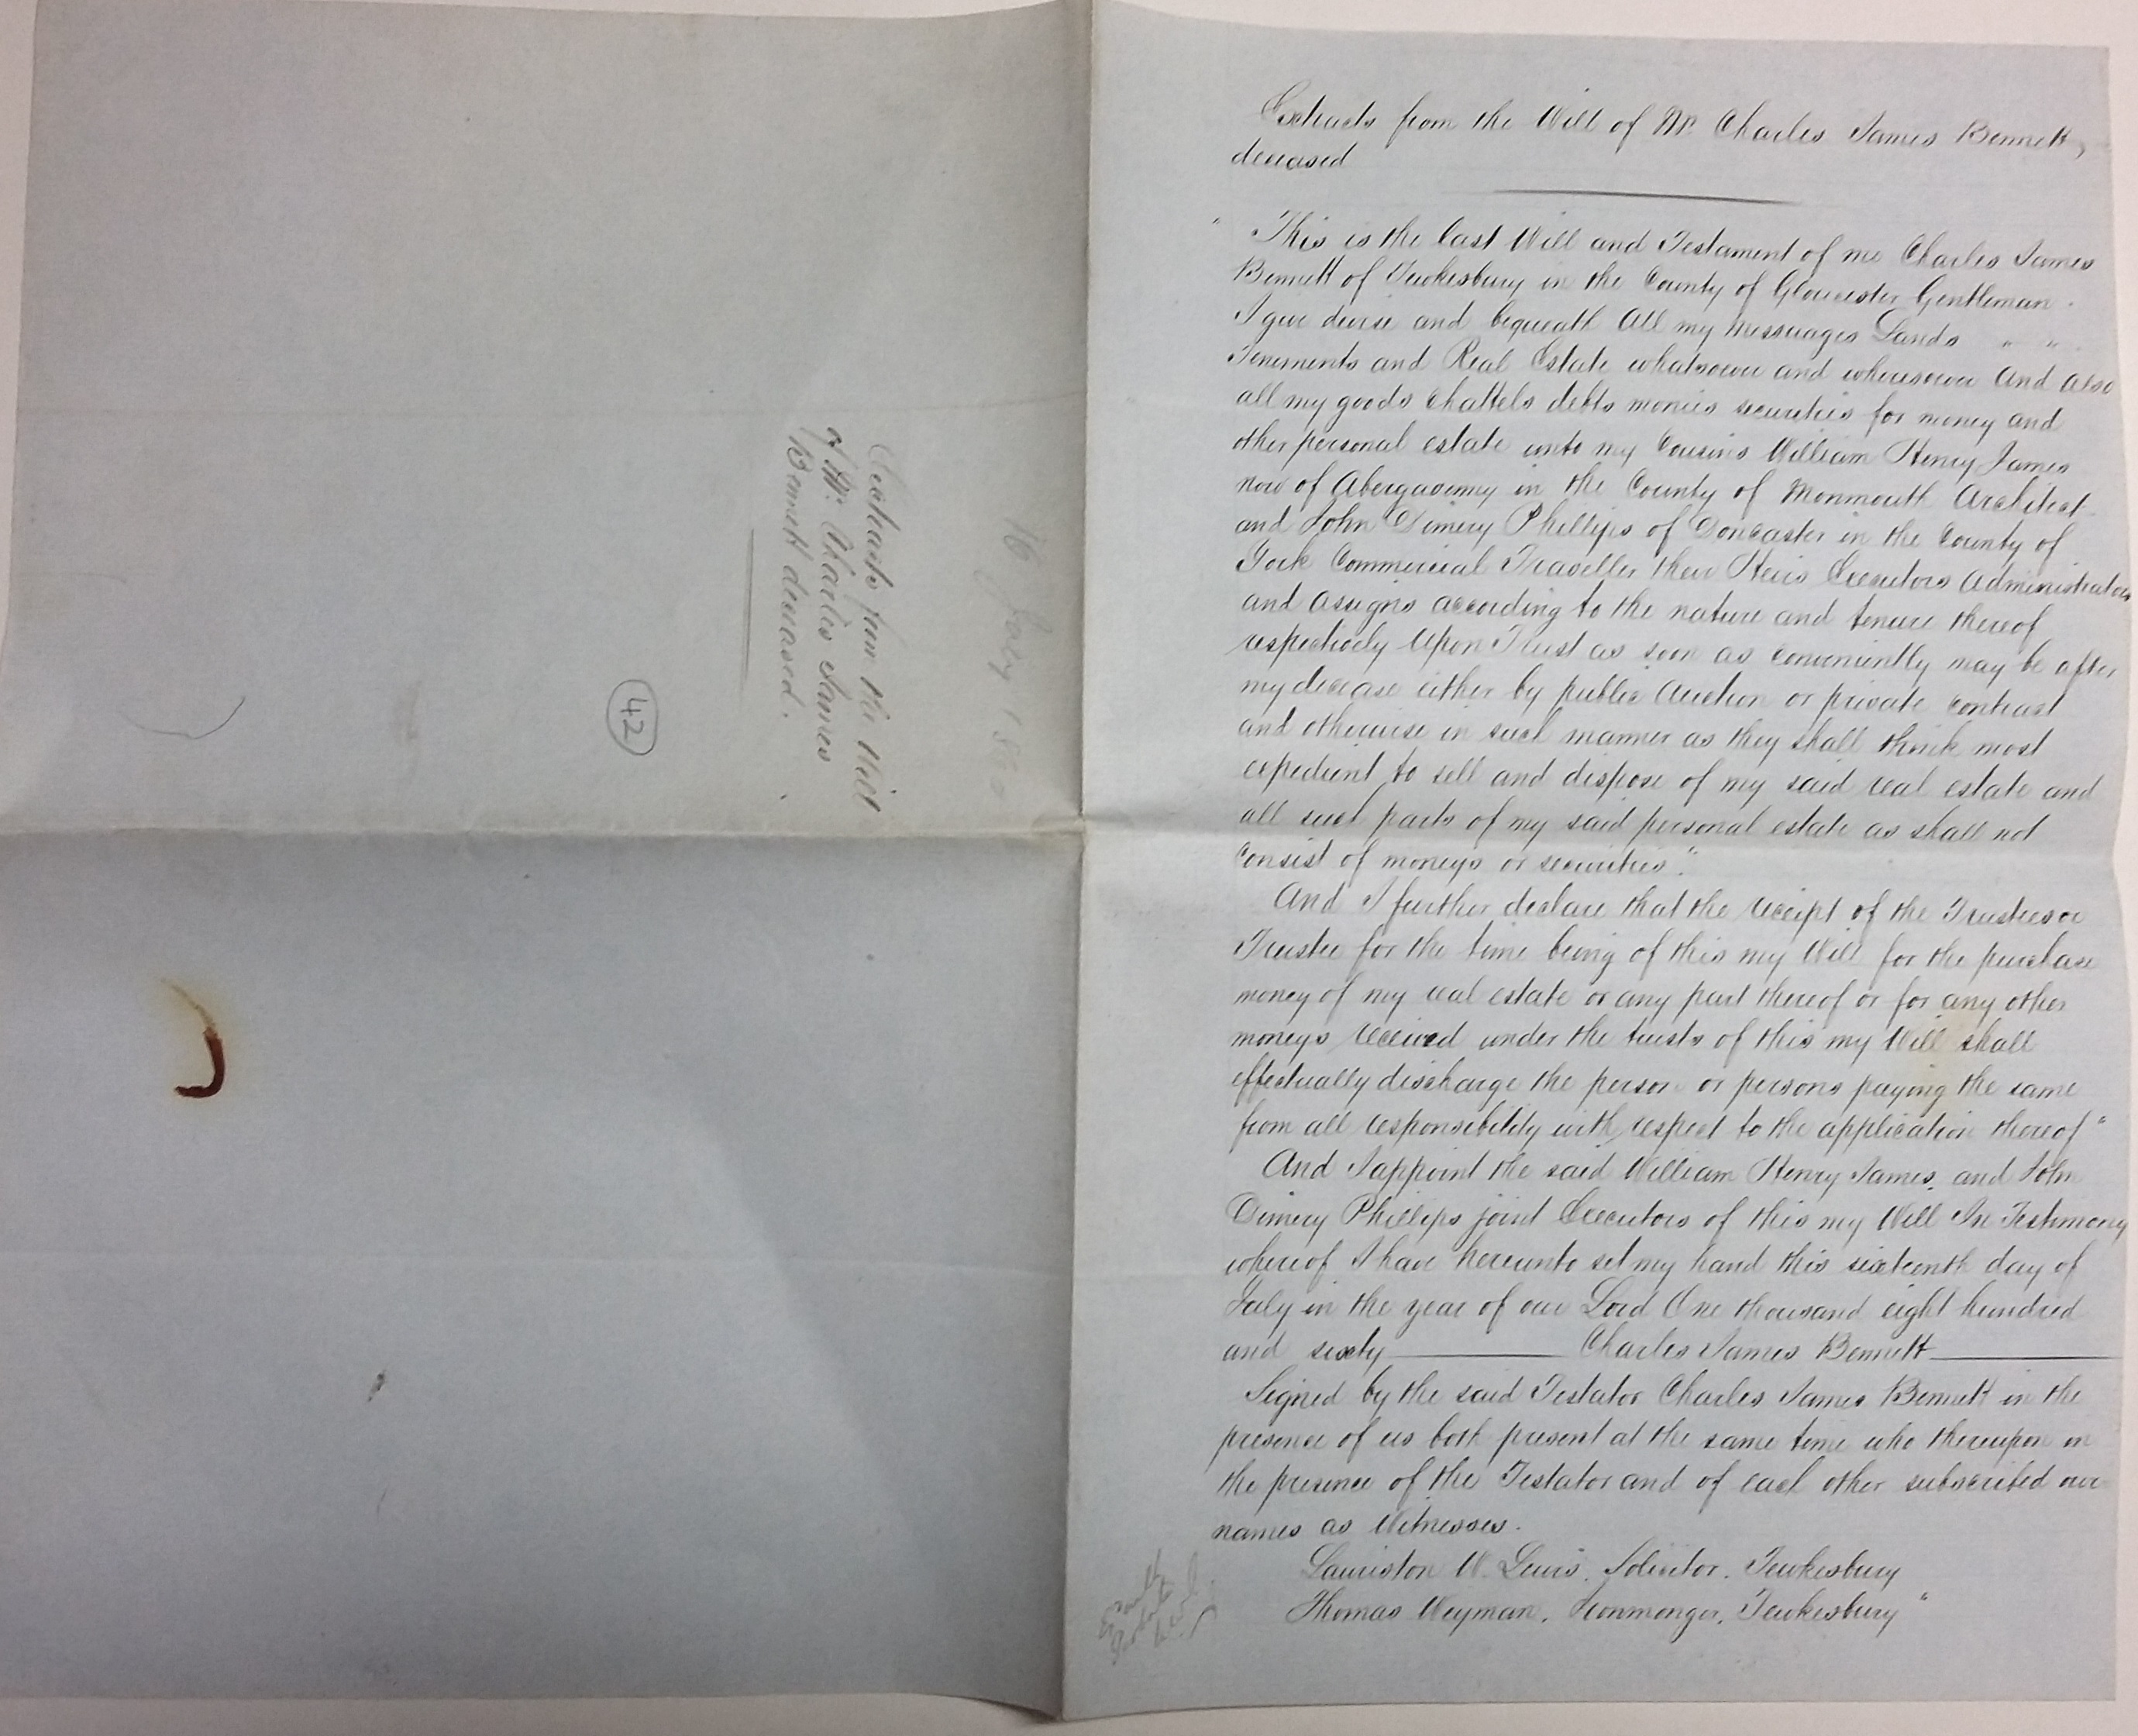 Extracts from the Will of Mr. Charles James Bennett,
deceased
" This is the last Will and Testament of me Charles James
Bennett of Tewkesbury in the County of Gloucester Gentleman.
I give devise and bequeath All my messuages Lands " "
Tenements and Real Estate whatsoever and wheresoever And also
all my goods Chattels debts monies securities for money and
other personal estate unto my Cousins William Henry James
now of Abergavenny in the County of Monmouth Architect
and John Dimery Phillips of Doncaster in the County of
York Commercial Traveller their Heirs Executors Administrators
and Assigns according to the nature and tenure thereof
respectively Upon Trust as soon as conveniently may be after
my decease either by public Auction or private contract
and otherwise in such manner as they shall think most
expedient to sell and dispose of my said real estate and
all such parts of my said personal estate as shall not
consist of moneys or securities."
And I further declare that the receipt of the Trustees or
Trustee for the time being of this my Will for the purchase
money of my real estate or any part thereof or for any other
moneys received under the trusts of this my Will shall
effectually discharge the person or persons paying the same
from all responsibility with respect to the application thereof"
And I appoint the said William Henry James, and John
Dimery Phillips joint Executors of this my Will In Testimony
whereof I have hereunto set my hand this sixteenth day of
July in the year of our Lord One thousand eight hundred
and sixty Charles James Bennett
Signed by the said Testator Charles James Bennett in the
presence of us both present at the same time who thereupon in
the presence of the Testator and of each other subscribed our
names as Witnesses.
Lauriston W. Lewis. Solicitor. Tewkesbury
Thomas Weyman. Ironmonger. Tewkesbury "
16 July 1860
Extracts from the Will
of Mr. Charles James
Bennett deceased.
42